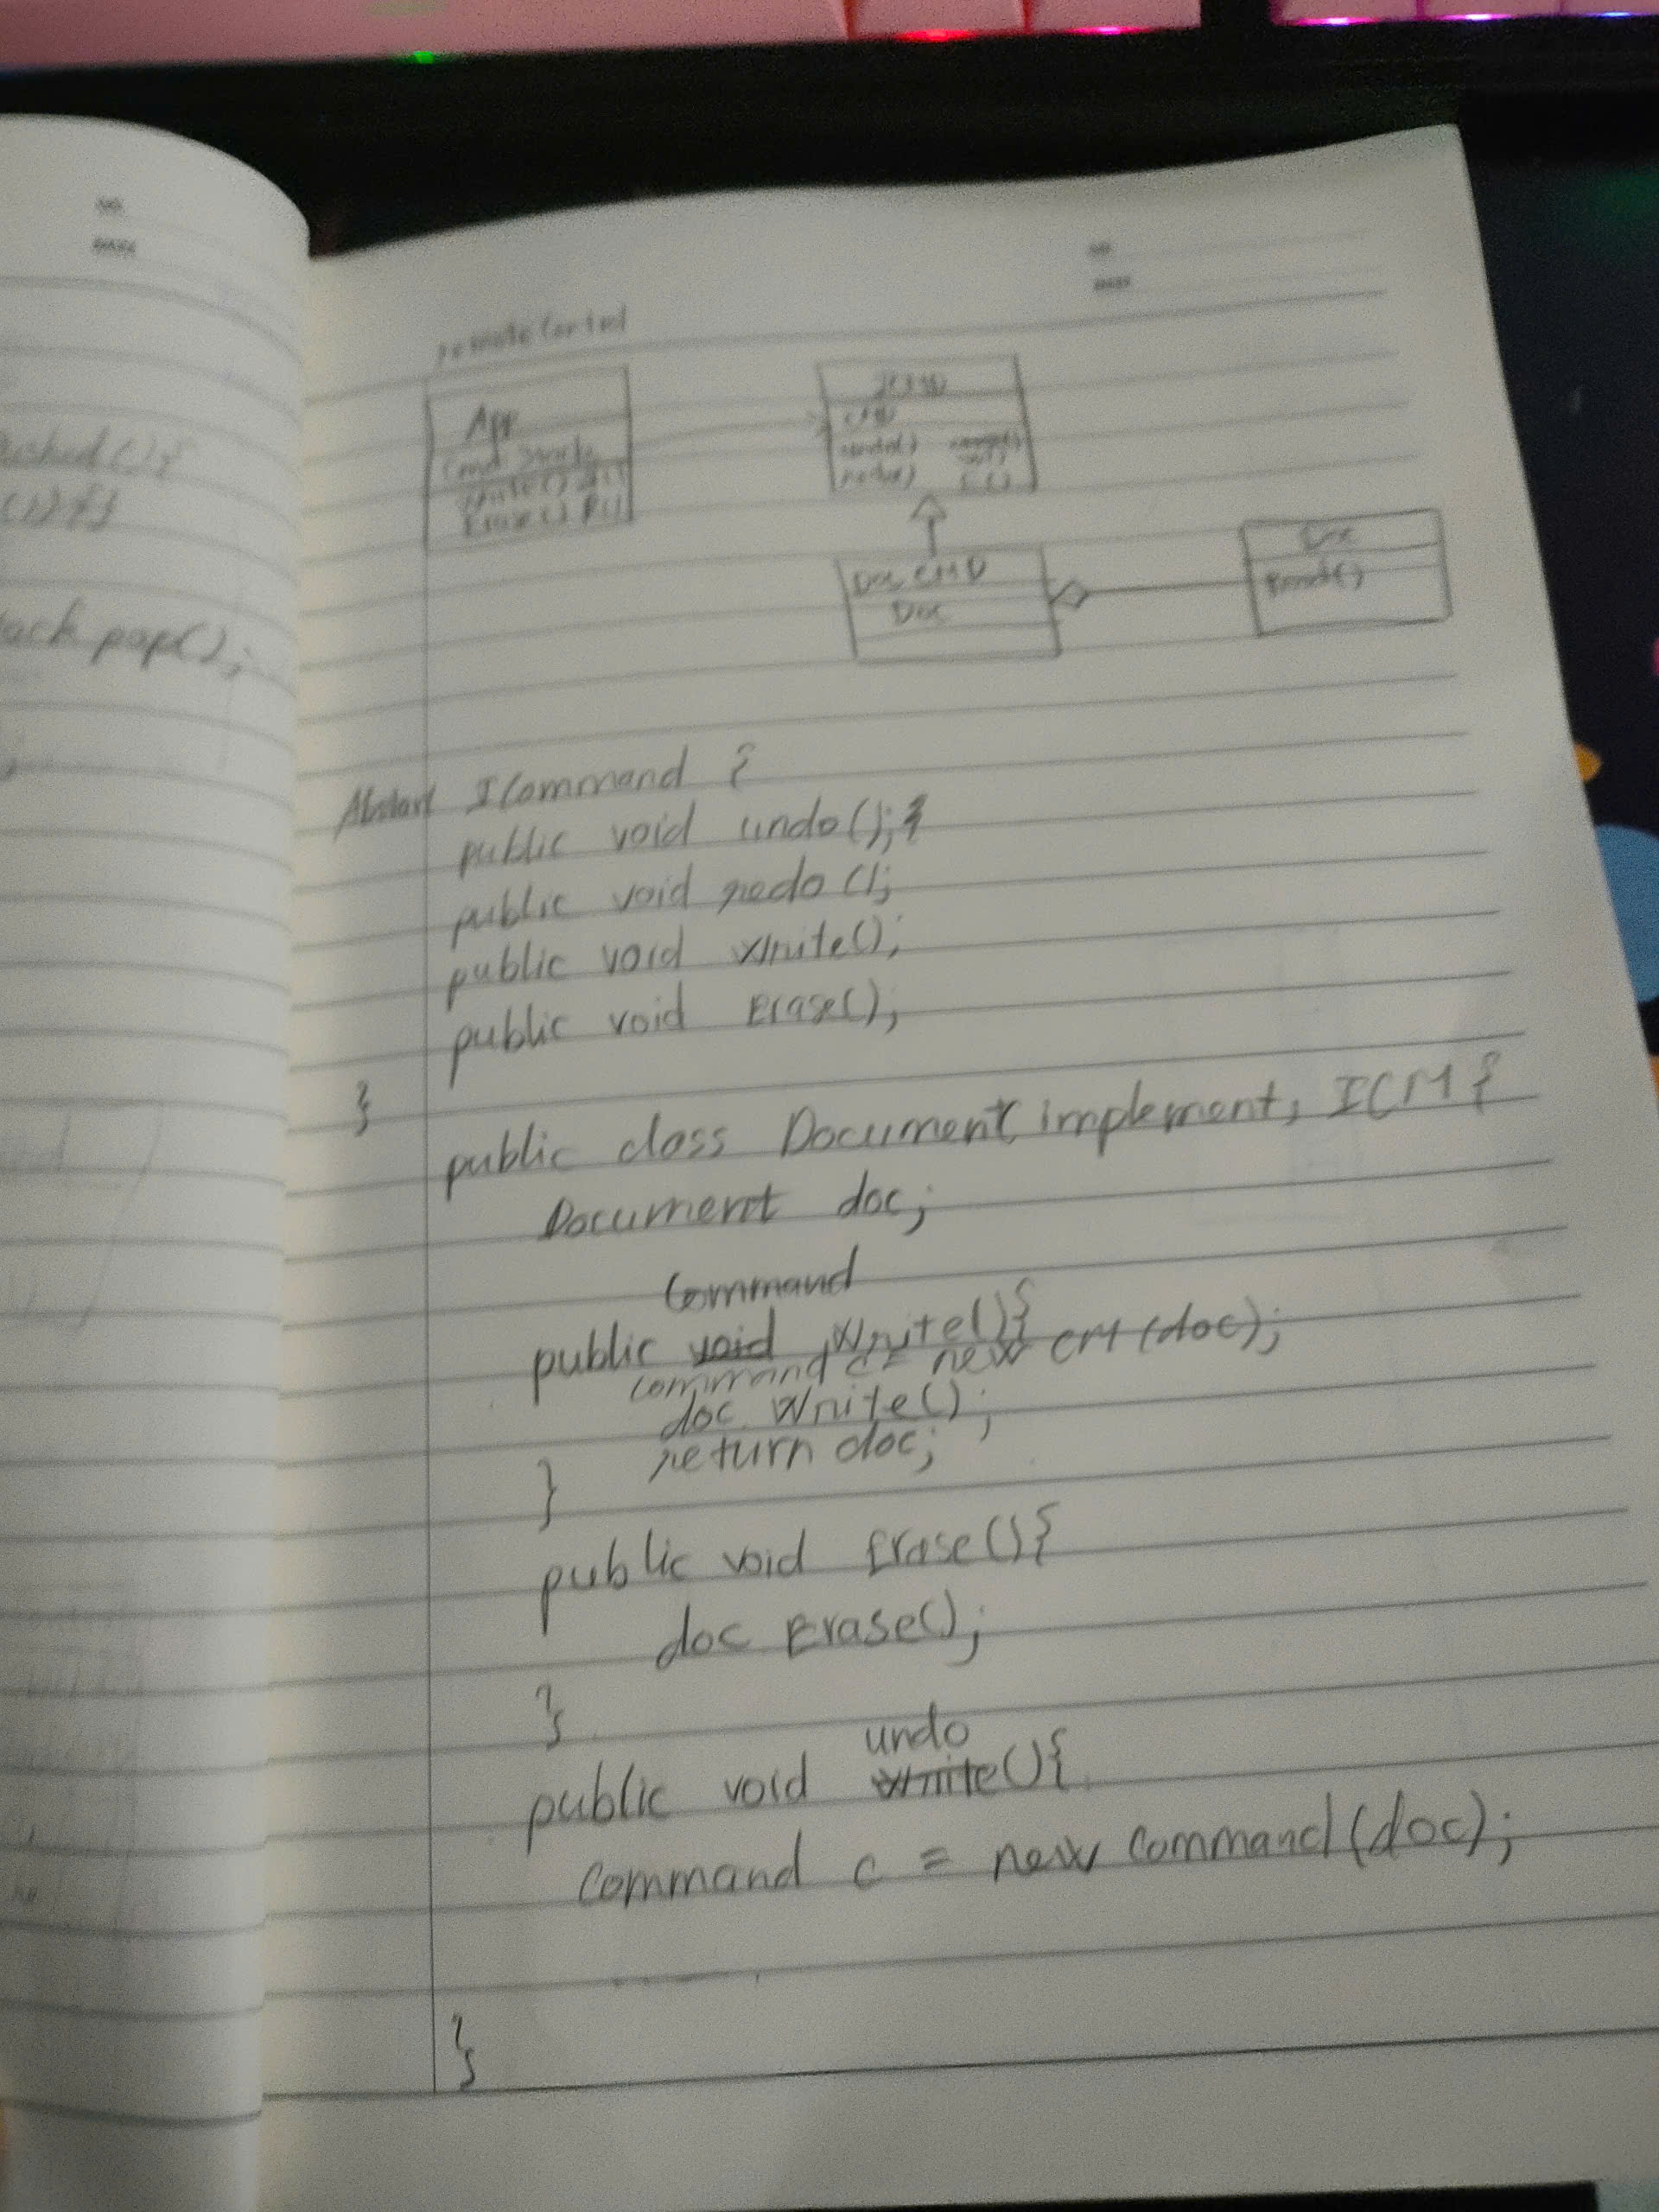 ushed(){
(){}
ack pop();
remote Control
App
Cmd Stack
Write()
Erase()
ICMD
undo()
redo()
Doc CMD
Doc
Doc
Abstart ICommand {
public void undo();
public void redo();
public void Write();
public void Erase();
}
public class Document implements ICM {
Document doc;
Command
public void Write(){
command c = new CM (doc);
doc. Write();
return doc;
}
public void Erase(){
doc Erase();
}
undo
public void Write(){
Command c = new Command (doc);
}